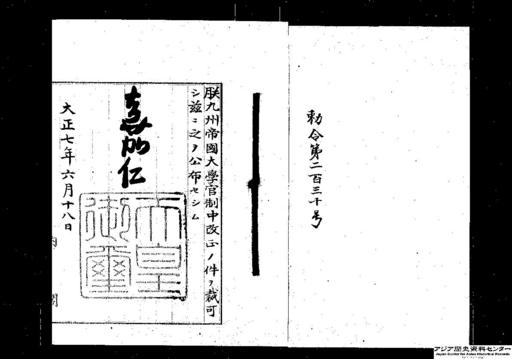 勅令第二百三十号
朕九州帝國大學官制中改正ノ件ヲ裁可
シ茲ニ之ヲ公布セシム
嘉仁
天皇
御璽
大正七年六月十八日
内閣
アジア歴史資料センター
Japan Center for Asian Historical Records